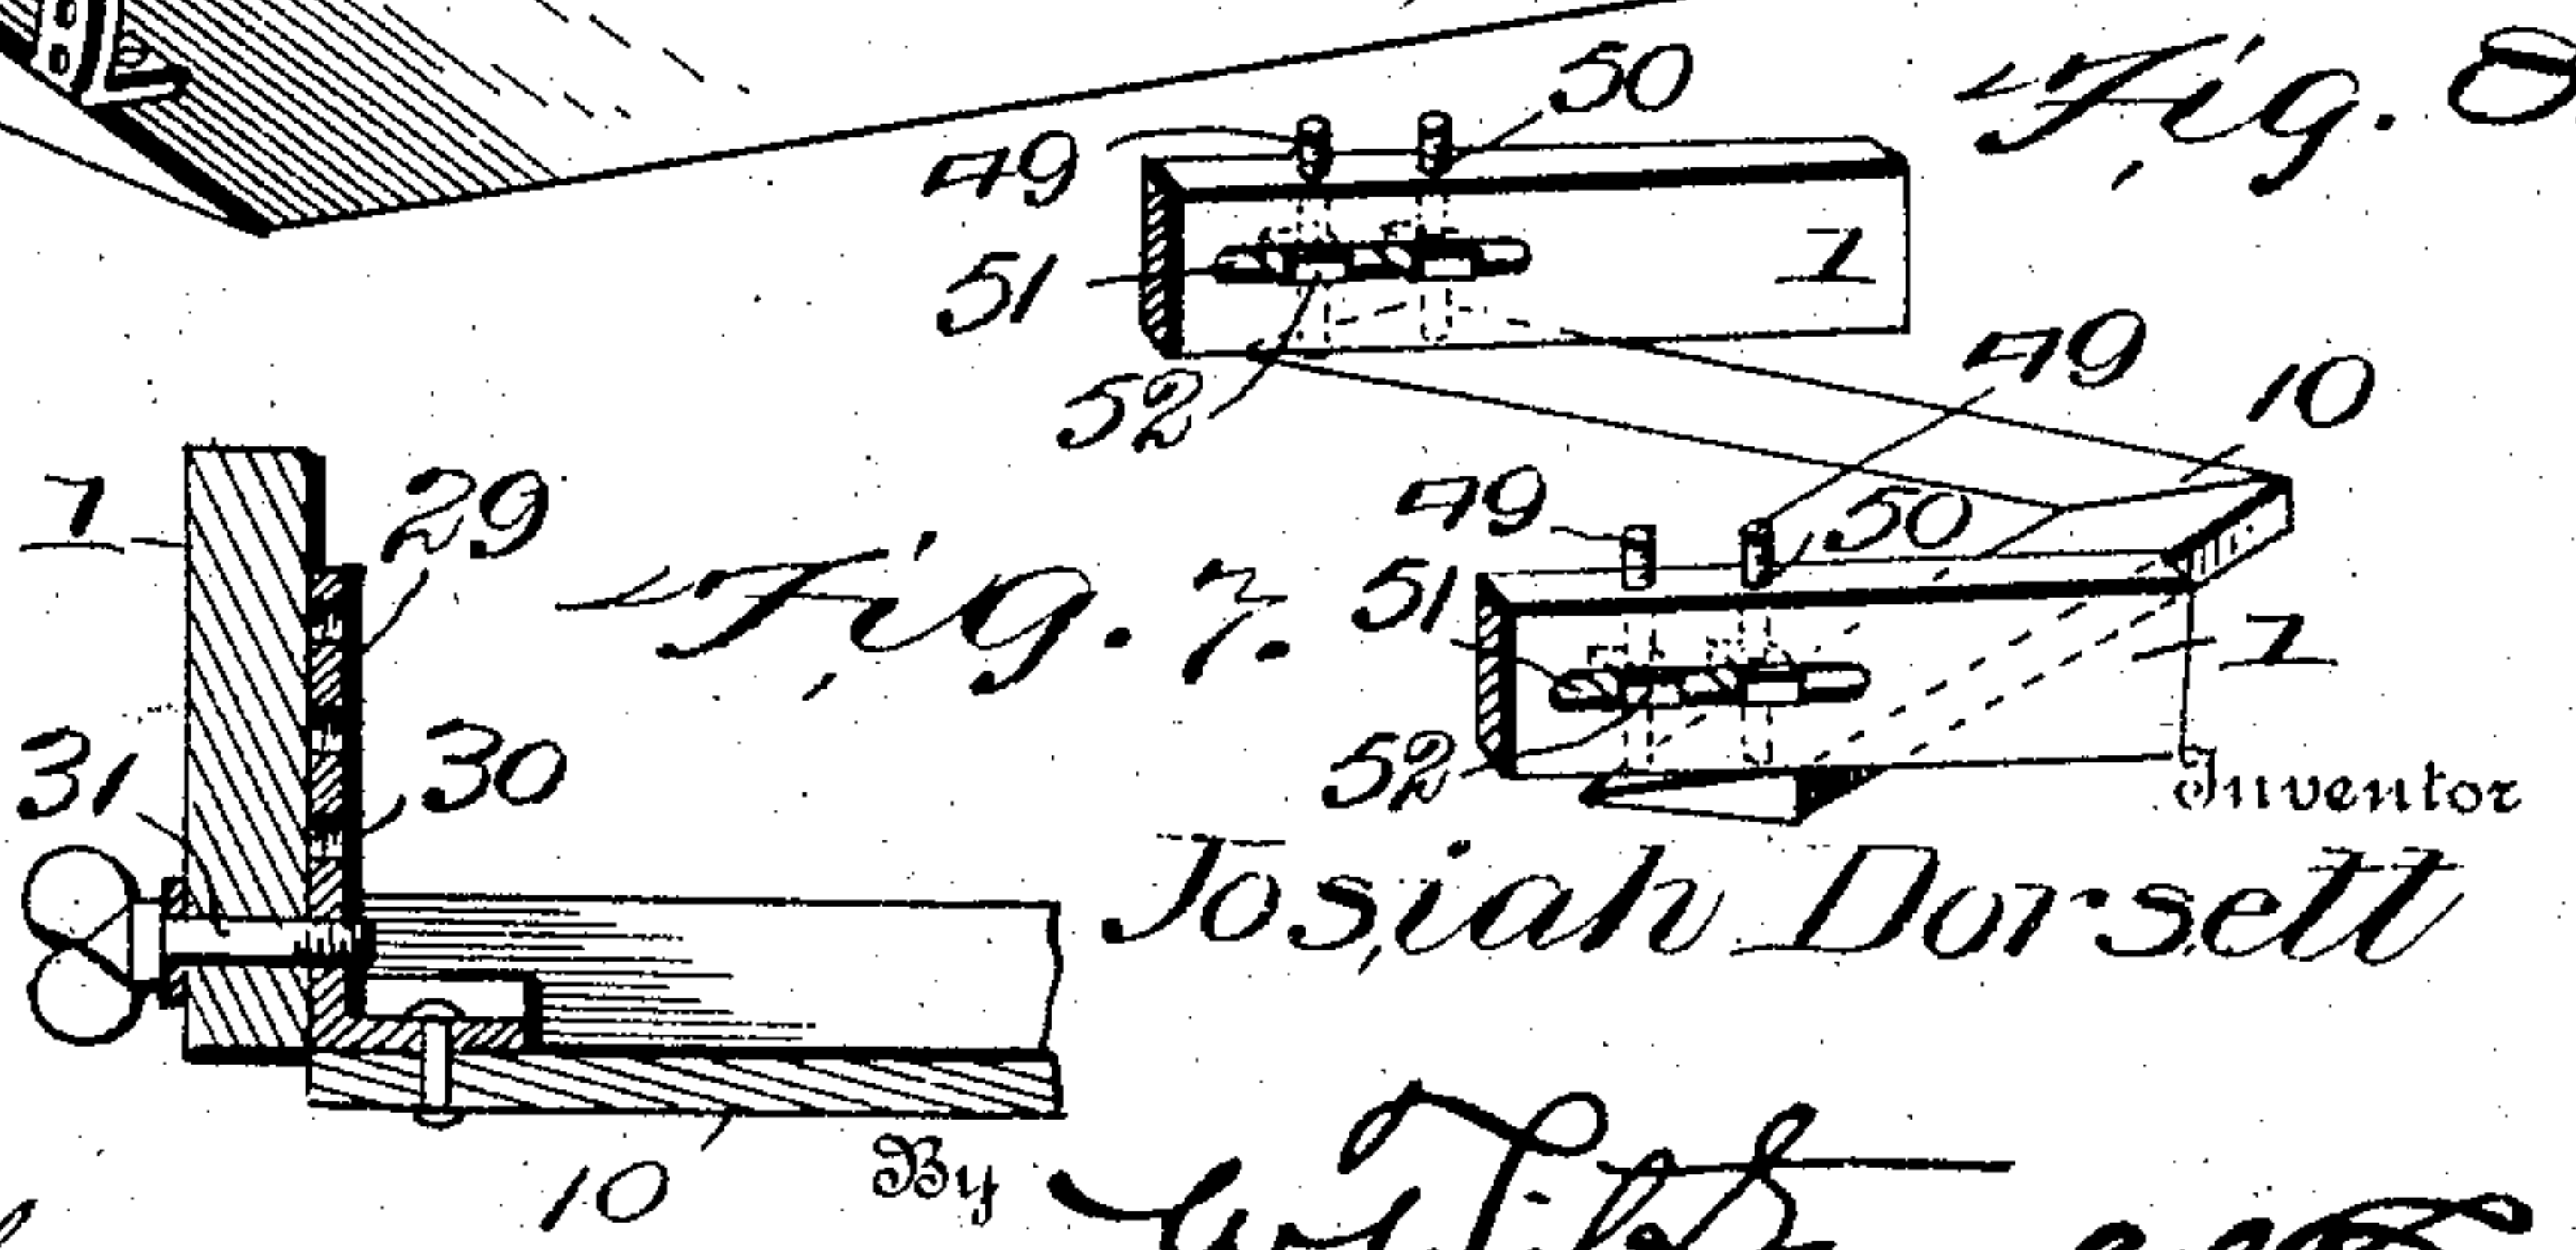 50
Fig. 8.
49
51
1
52
49
10
1
29
49
50
Fig. 7.
51
1
31
30
52
Inventor
Josiah Dorsett
10
By